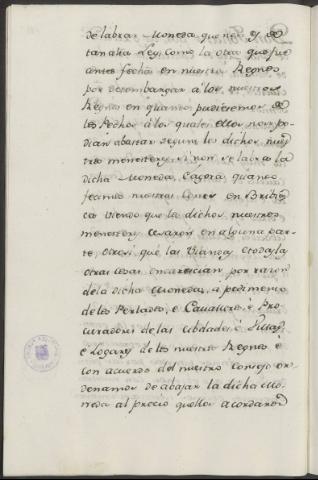 de labrar Moneda que non es de
tan alta Ley, como la otra que fue
antes fecha en nuestros Regnos
por desembargar á los nuestros
Regnos en quanto pudiesemos de
los Pechos á los quales ellos non po
dian abastar segunt los dichos nues
tros menesteres si non se labrara la
dicha Moneda, é agora quando
fecimos nuestras Cortes en Bribies
ca viendo que los dichos nuestros
menesteres cesaron en alguna par
te, otrosi que las viandas é todas las
otras cosas encarescian por razon
de la dicha Moneda, á pedimento
de los Perlados, é Cavalleros é Pro
curadores de las Cibdades, é Villas,
é Logares de los nuestros Regnos é
con acuerdo del nuestro Consejo or
denamos de abajar la dicha Mo
neda al precio que ellos acordaron